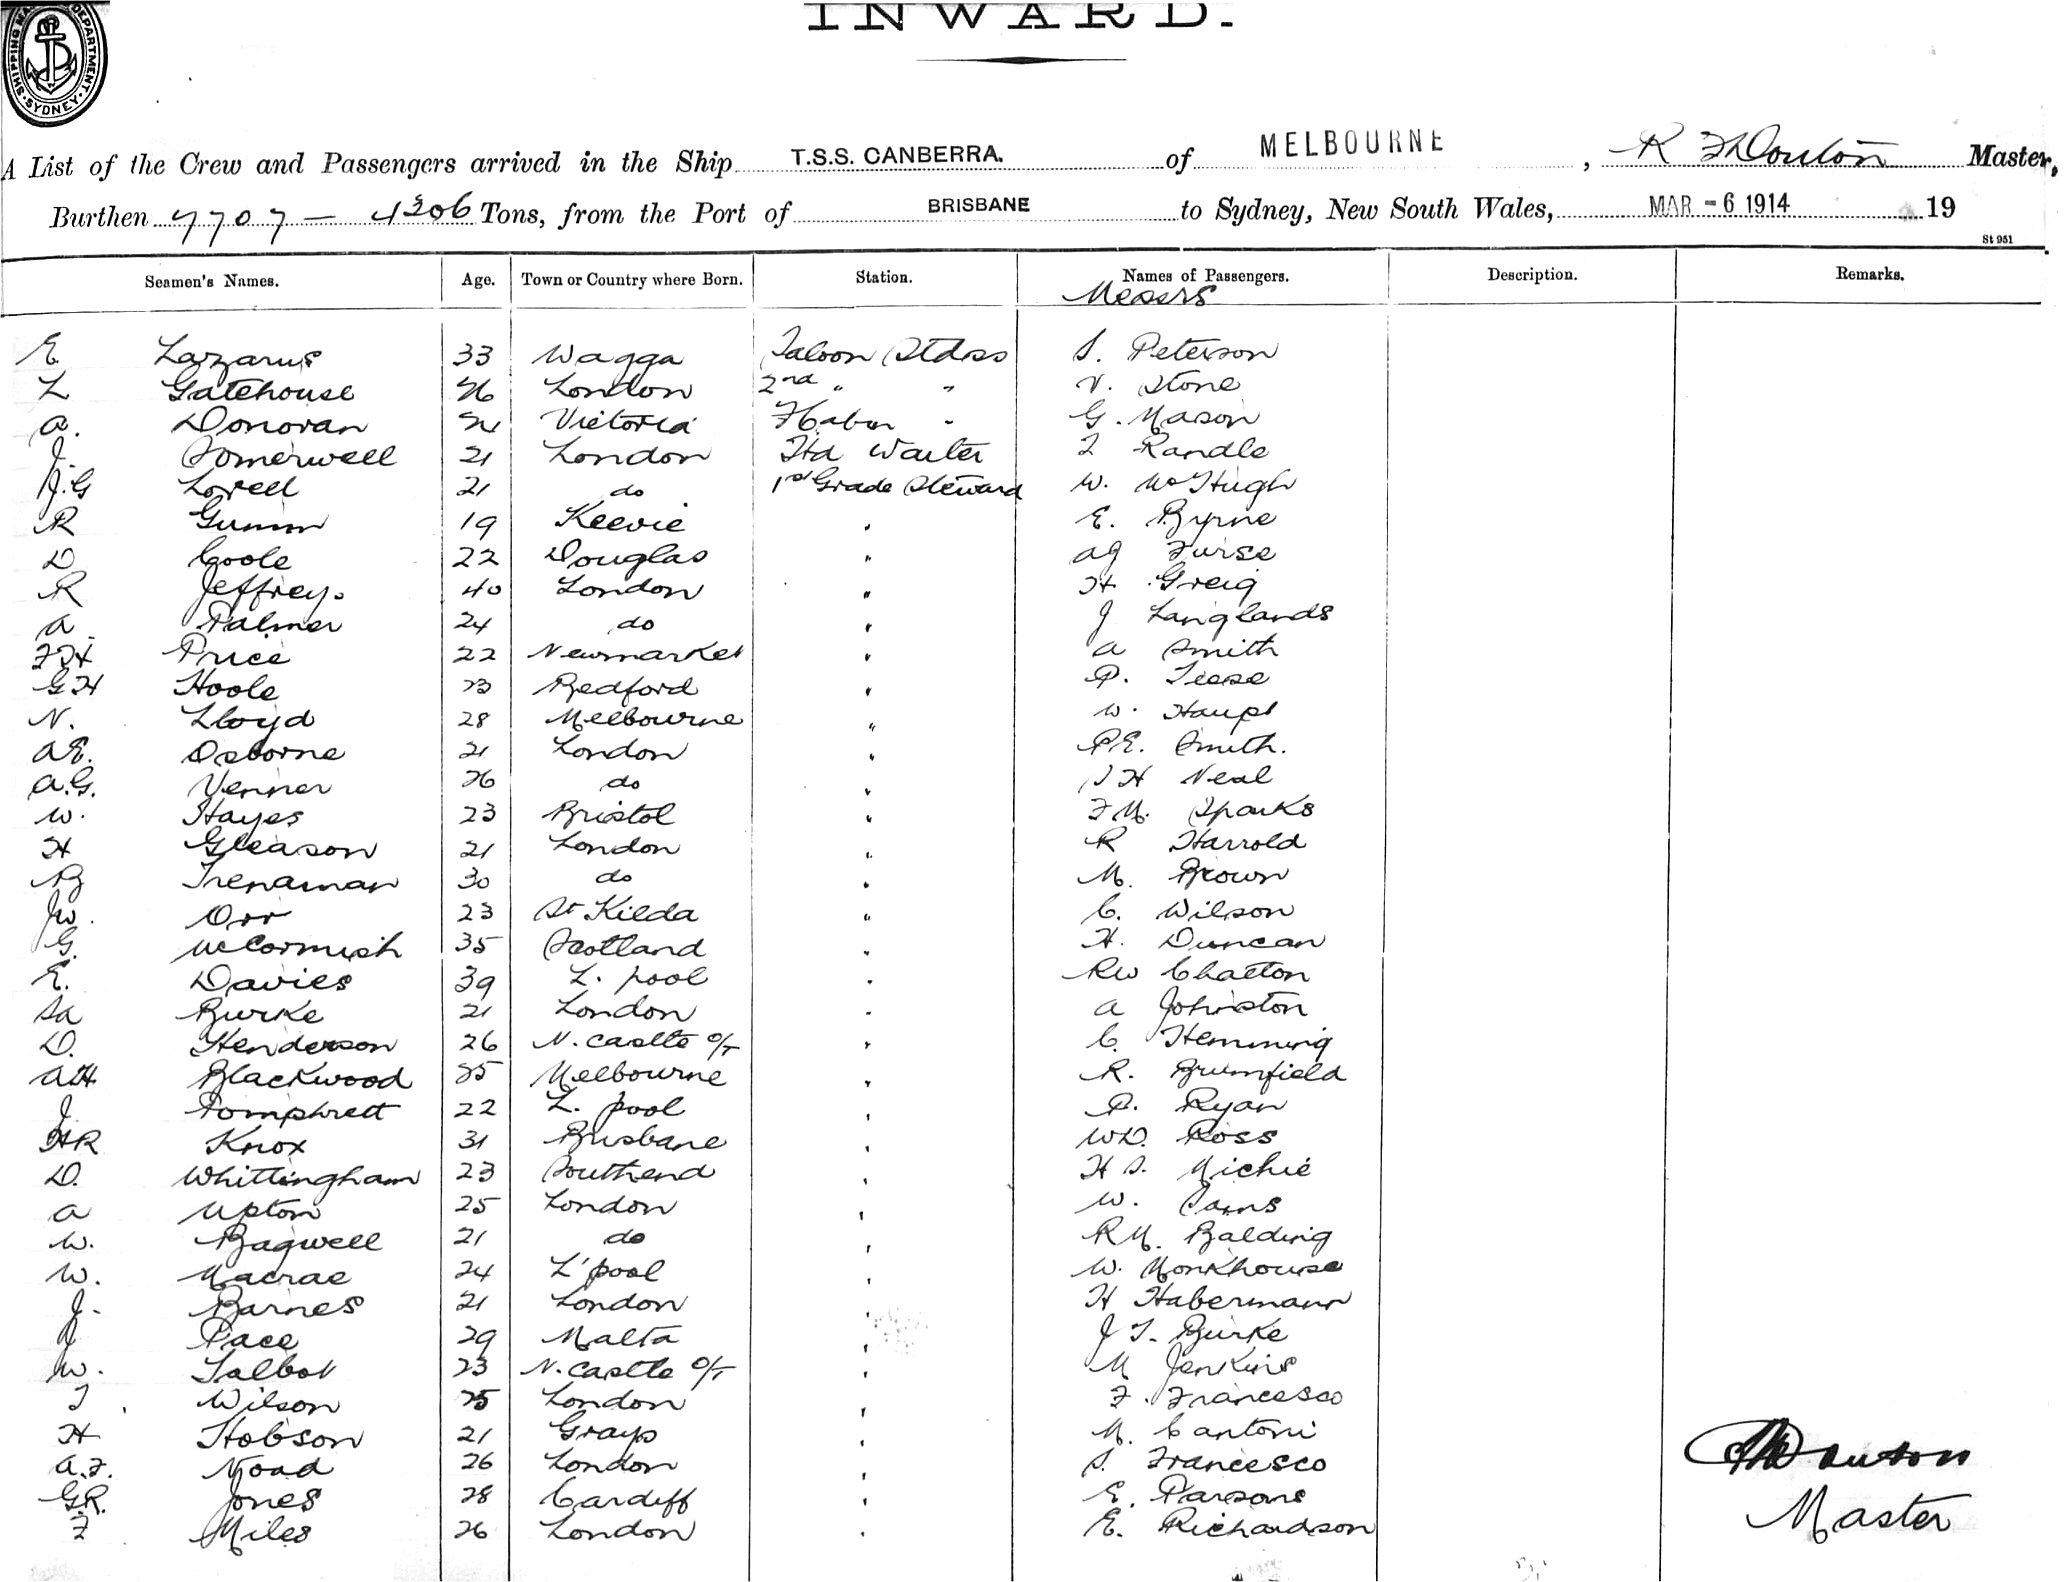 SHIPPING MA DEPARTMENT. SYDNEY.
INWARD.
A List of the Crew and Passengers arrived in the Ship T.S.S. CANBERRA. of MELBOURNE, R Master,
Burthen 7707 - 4306 Tons, from the Port of BRISBANE to Sydney, New South Wales, MAR -6 1914 19
St 951
Seamen's Names. Age. Town or Country where Born. Station. Names of Passengers. Description. Remarks.
Messrs
E Lazarus 33 Wagga Saloon Stdess S. Peterson
L Gatehouse 26 London 2nd " " V. Stone
A. Donovan 21 Victoria " G. Mason
J. Somerwell 21 London Hd Waiter Randle
J.G Lovell 21 do 1st Grade Steward W. McHugh
R Gumm 19 Keevie " E. Byrne
D Coole 22 Douglas " AG Furse
R Jeffreys 40 London " H Greig
A Palmer 24 do " J Langlands
FH Price 22 Newmarket " A Smith
GH Hoole 23 Bedford " P. Tiese
N. Lloyd 28 Melbourne " W. Haupt
AE. Osborne 21 London " PE. Smith.
A.G. Venner 26 do " H Neal
W. Hayes 23 Bristol " F M. Sparks
H Gleason 21 London " R Harrold
B Trenaman 30 do " M. Brown
JW. Orr 23 St Kilda " C. Wilson
G. McCormish 35 Scotland " H. Duncan
E. Davies 39 L. pool " RW Chatton
SA Burke 21 London " A Johnston
D. Henderson 26 N. Castle o/T " C. Hemming
AH Blackwood 25 Melbourne " R. Brumfield
J. Pomphrett 22 L. pool " P. Ryan
HR Knox 31 Brisbane " WD. Ross
D. Whittingham 23 Southend " H S. Michie
A Upton 25 London " W.
W. Bagwell 21 do " R M. Balding
W. Macrae 24 L'pool " W. Monkhouse
J. Barnes 21 London " H Habermann
J Pace 29 Malta " J T. Burke
W. Talbot 23 N. Castle o/T " M Jenkins
T Wilson 25 London " F. Francesco
H Hobson 21 Grays " M. Cantoni
A.F. Noad 26 London " S. Francesco
G.R. Jones 28 Cardiff " E. Parsons
F Miles 26 London " E. Richardson
Master